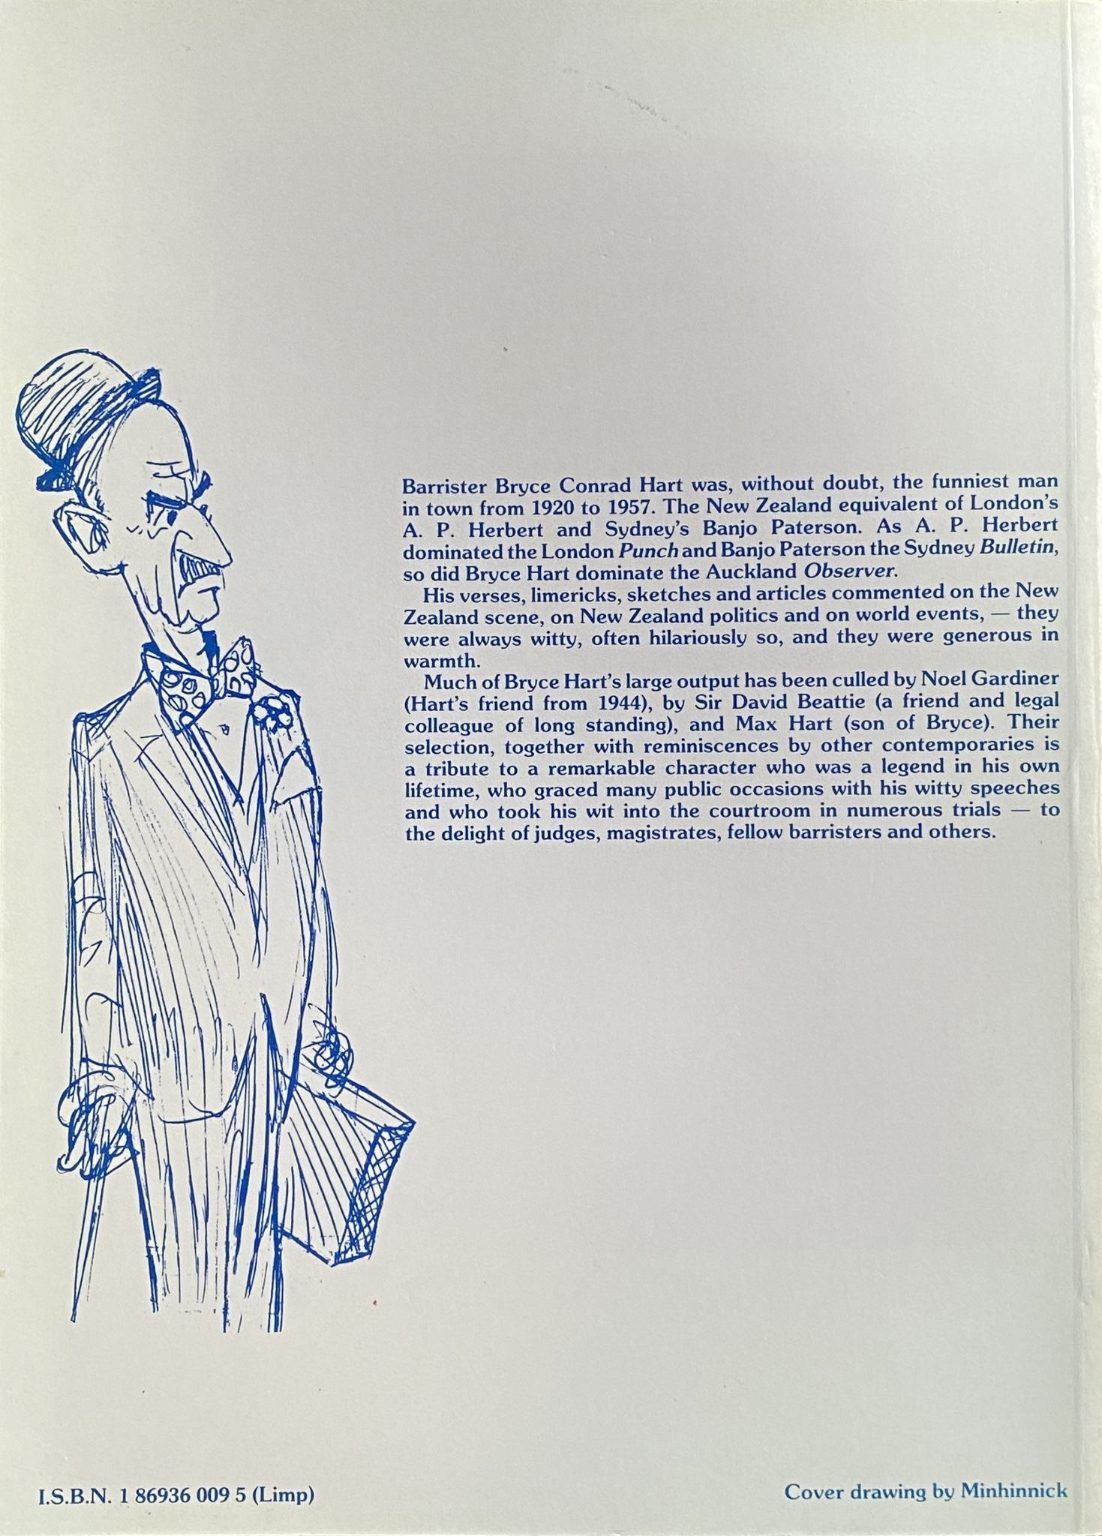 Barrister Bryce Conrad Hart was, without doubt, the funniest man
in town from 1920 to 1957. The New Zealand equivalent of London's
A. P. Herbert and Sydney's Banjo Paterson. As A. P. Herbert
dominated the London Punch and Banjo Paterson the Sydney Bulletin,
so did Bryce Hart dominate the Auckland Observer.
His verses, limericks, sketches and articles commented on the New
Zealand scene, on New Zealand politics and on world events, — they
were always witty, often hilariously so, and they were generous in
warmth.
Much of Bryce Hart's large output has been culled by Noel Gardiner
(Hart's friend from 1944), by Sir David Beattie (a friend and legal
colleague of long standing), and Max Hart (son of Bryce). Their
selection, together with reminiscences by other contemporaries is
a tribute to a remarkable character who was a legend in his own
lifetime, who graced many public occasions with his witty speeches
and who took his wit into the courtroom in numerous trials — to
the delight of judges, magistrates, fellow barristers and others.
I.S.B.N. 1 86936 009 5 (Limp)
Cover drawing by Minhinnick